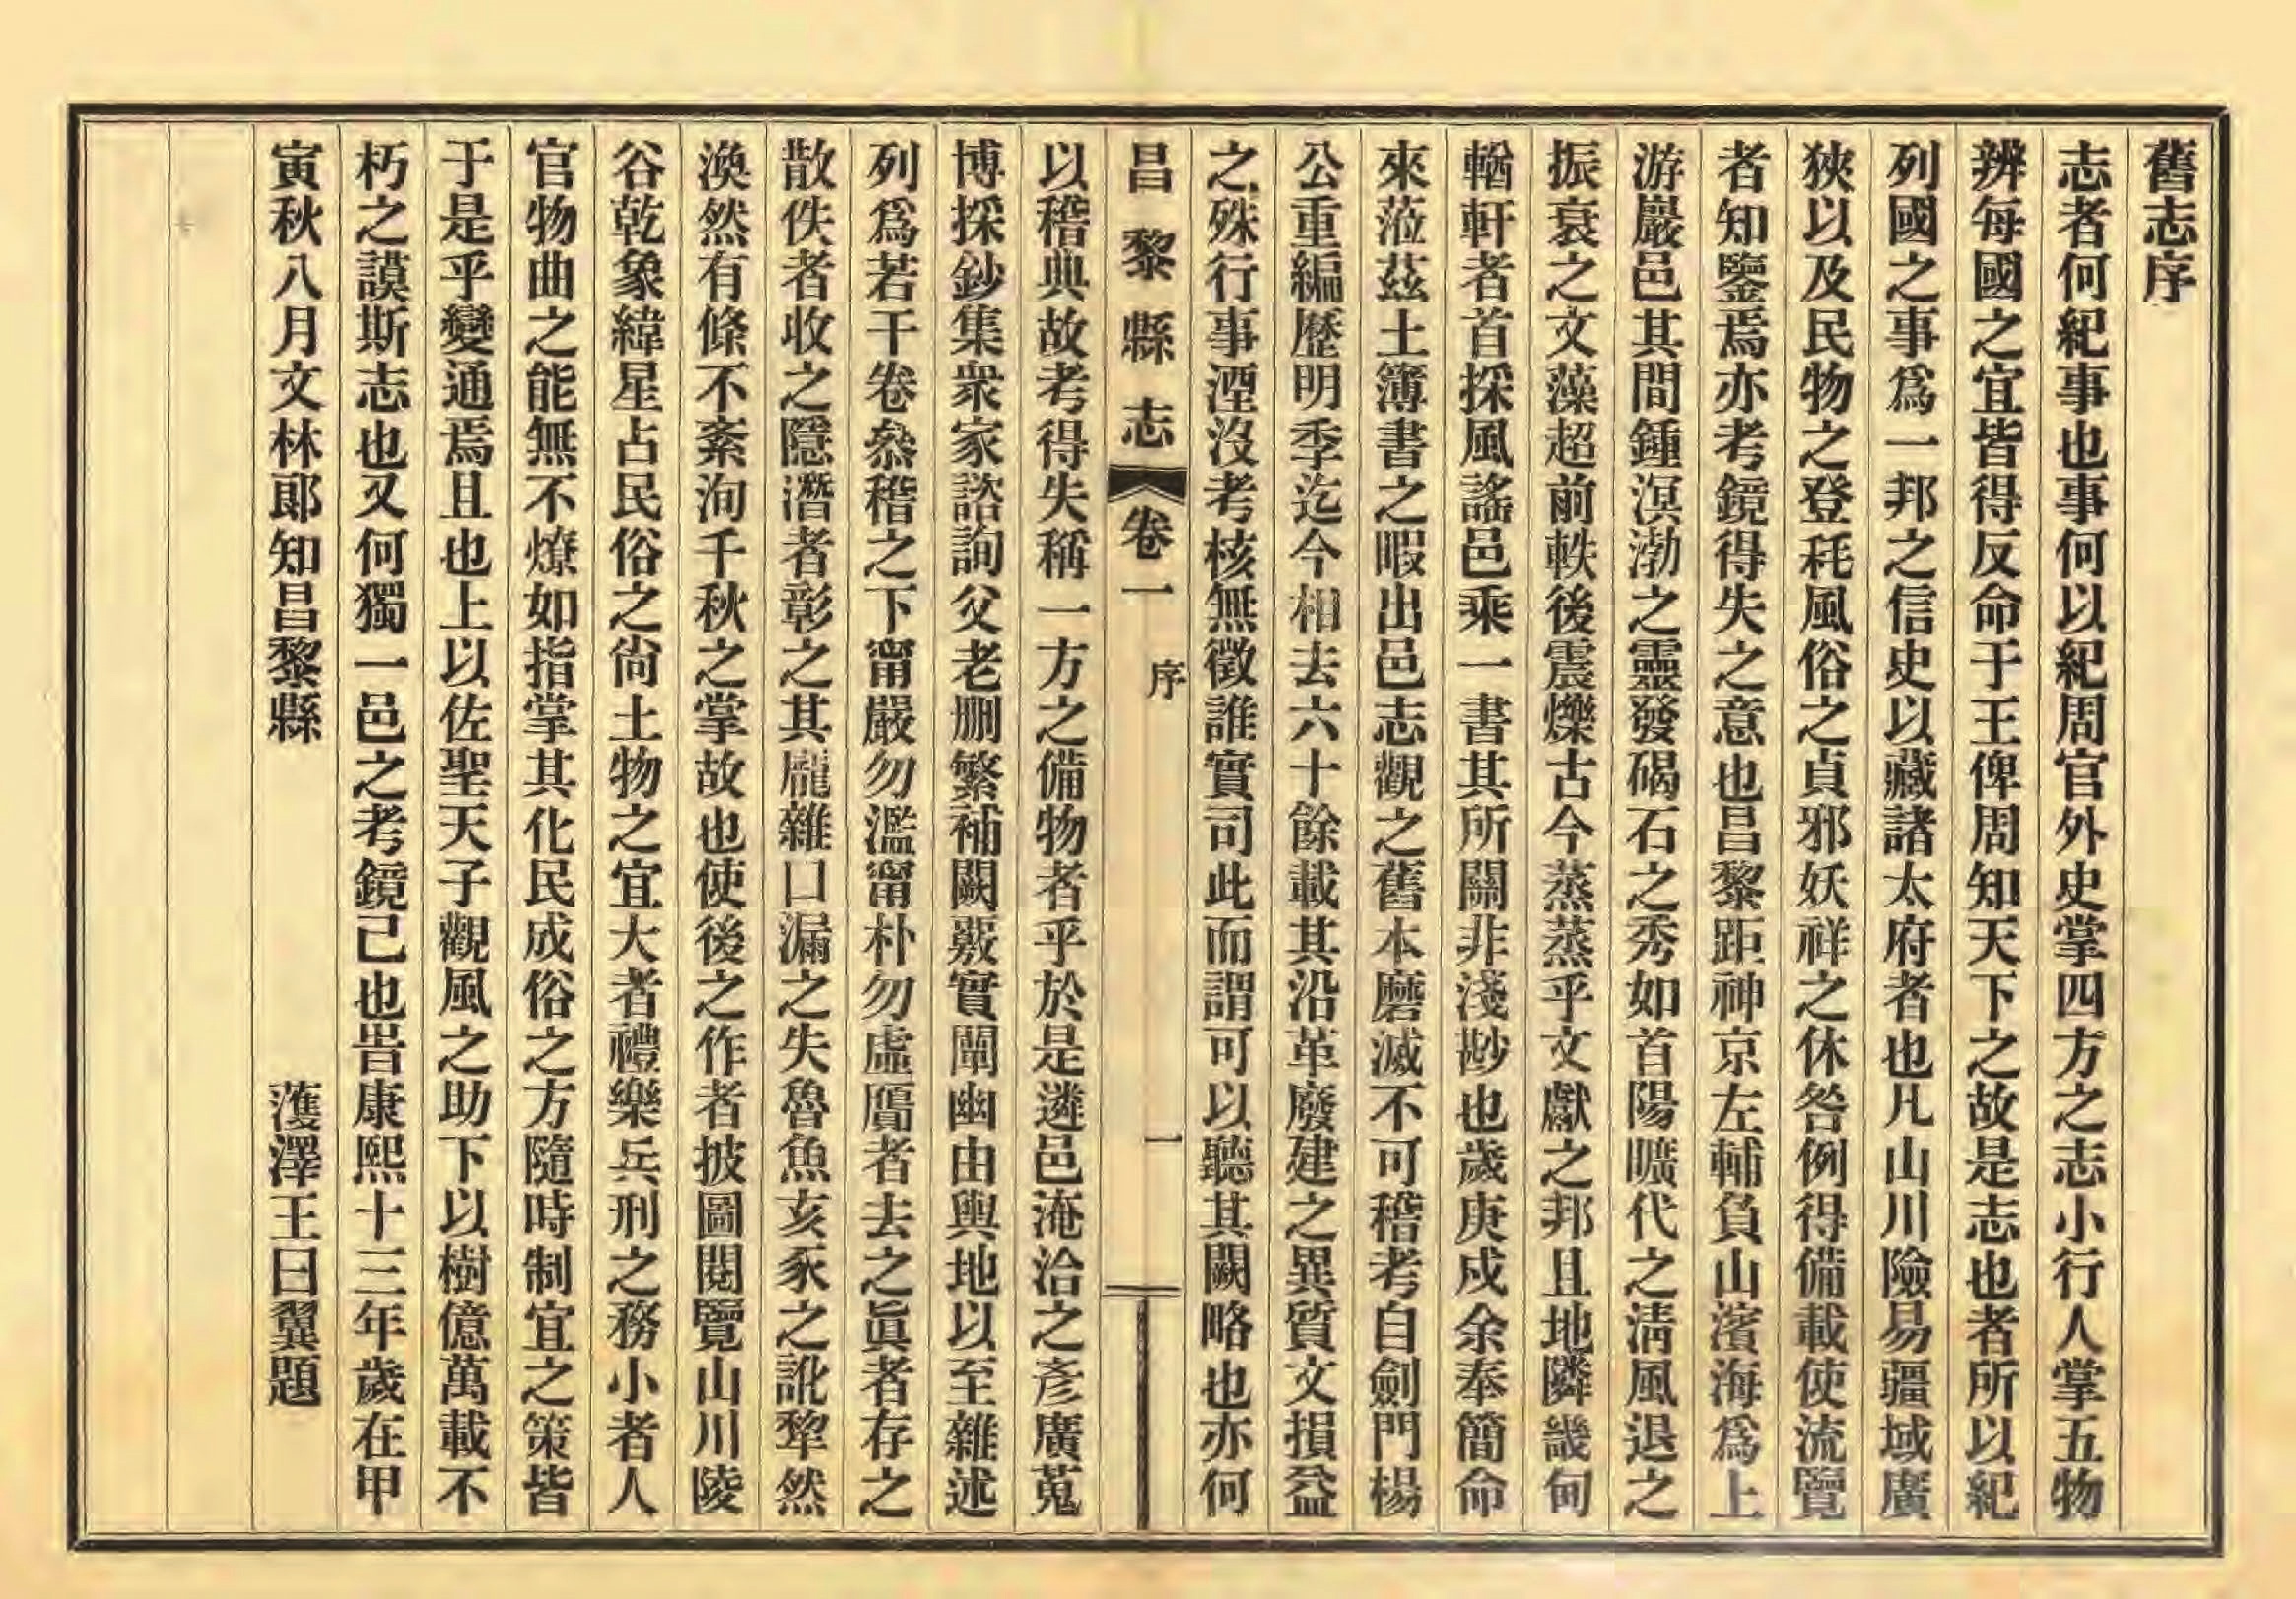 舊志序
志者何紀事也事何以紀周官外史掌四方之志小行人掌五物
辨每國之宜皆得反命于王俾周知天下之故是志也者所以紀
列國之事爲一邦之信史以藏諸太府者也凡山川險易疆域廣
狹以及民物之登耗風俗之貞邪妖祥之休咎例得備載使流覽
者知鑒焉亦考鏡得失之意也昌黎距神京左輔負山濱海爲上
游巖邑其間鍾溟渤之靈發碣石之秀如首陽曠代之清風退之
振衰之文藻超前軼後震爍古今蒸蒸乎文獻之邦且地隣畿甸
輶軒者首採風謠邑乘一書其所關非淺尠也歲庚戍余奉簡命
來蒞茲土簿書之暇出邑志觀之舊本磨滅不可稽考自劍門楊
公重編歷明季迄今相去六十餘載其沿革廢建之異質文損益
之殊行事湮沒考核無徵誰實司此而謂可以聽其闕略也亦何
昌黎縣志 卷一 序 一
以稽典故考得失稱一方之備物者乎於是遴邑淹洽之彥廣蒐
博採鈔集衆家諮詢父老刪繁補闕覈實闡幽由輿地以至雜述
列爲若干卷叅稽之下甯嚴勿濫甯朴勿虛贗者去之眞者存之
散佚者收之隱潛者彰之其龐雜口漏之失魯魚亥豕之訛犂然
渙然有條不紊洵千秋之掌故也使後之作者披圖閱覽山川陵
谷乾象緯星占民俗之尙土物之宜大者禮樂兵刑之務小者人
官物曲之能無不燎如指掌其化民成俗之方隨時制宜之策皆
于是乎變通焉且也上以佐聖天子觀風之助下以樹億萬載不
朽之謨斯志也又何獨一邑之考鏡已也旹康熙十三年歲在甲
寅秋八月文林郎知昌黎縣 濩澤王曰翼題